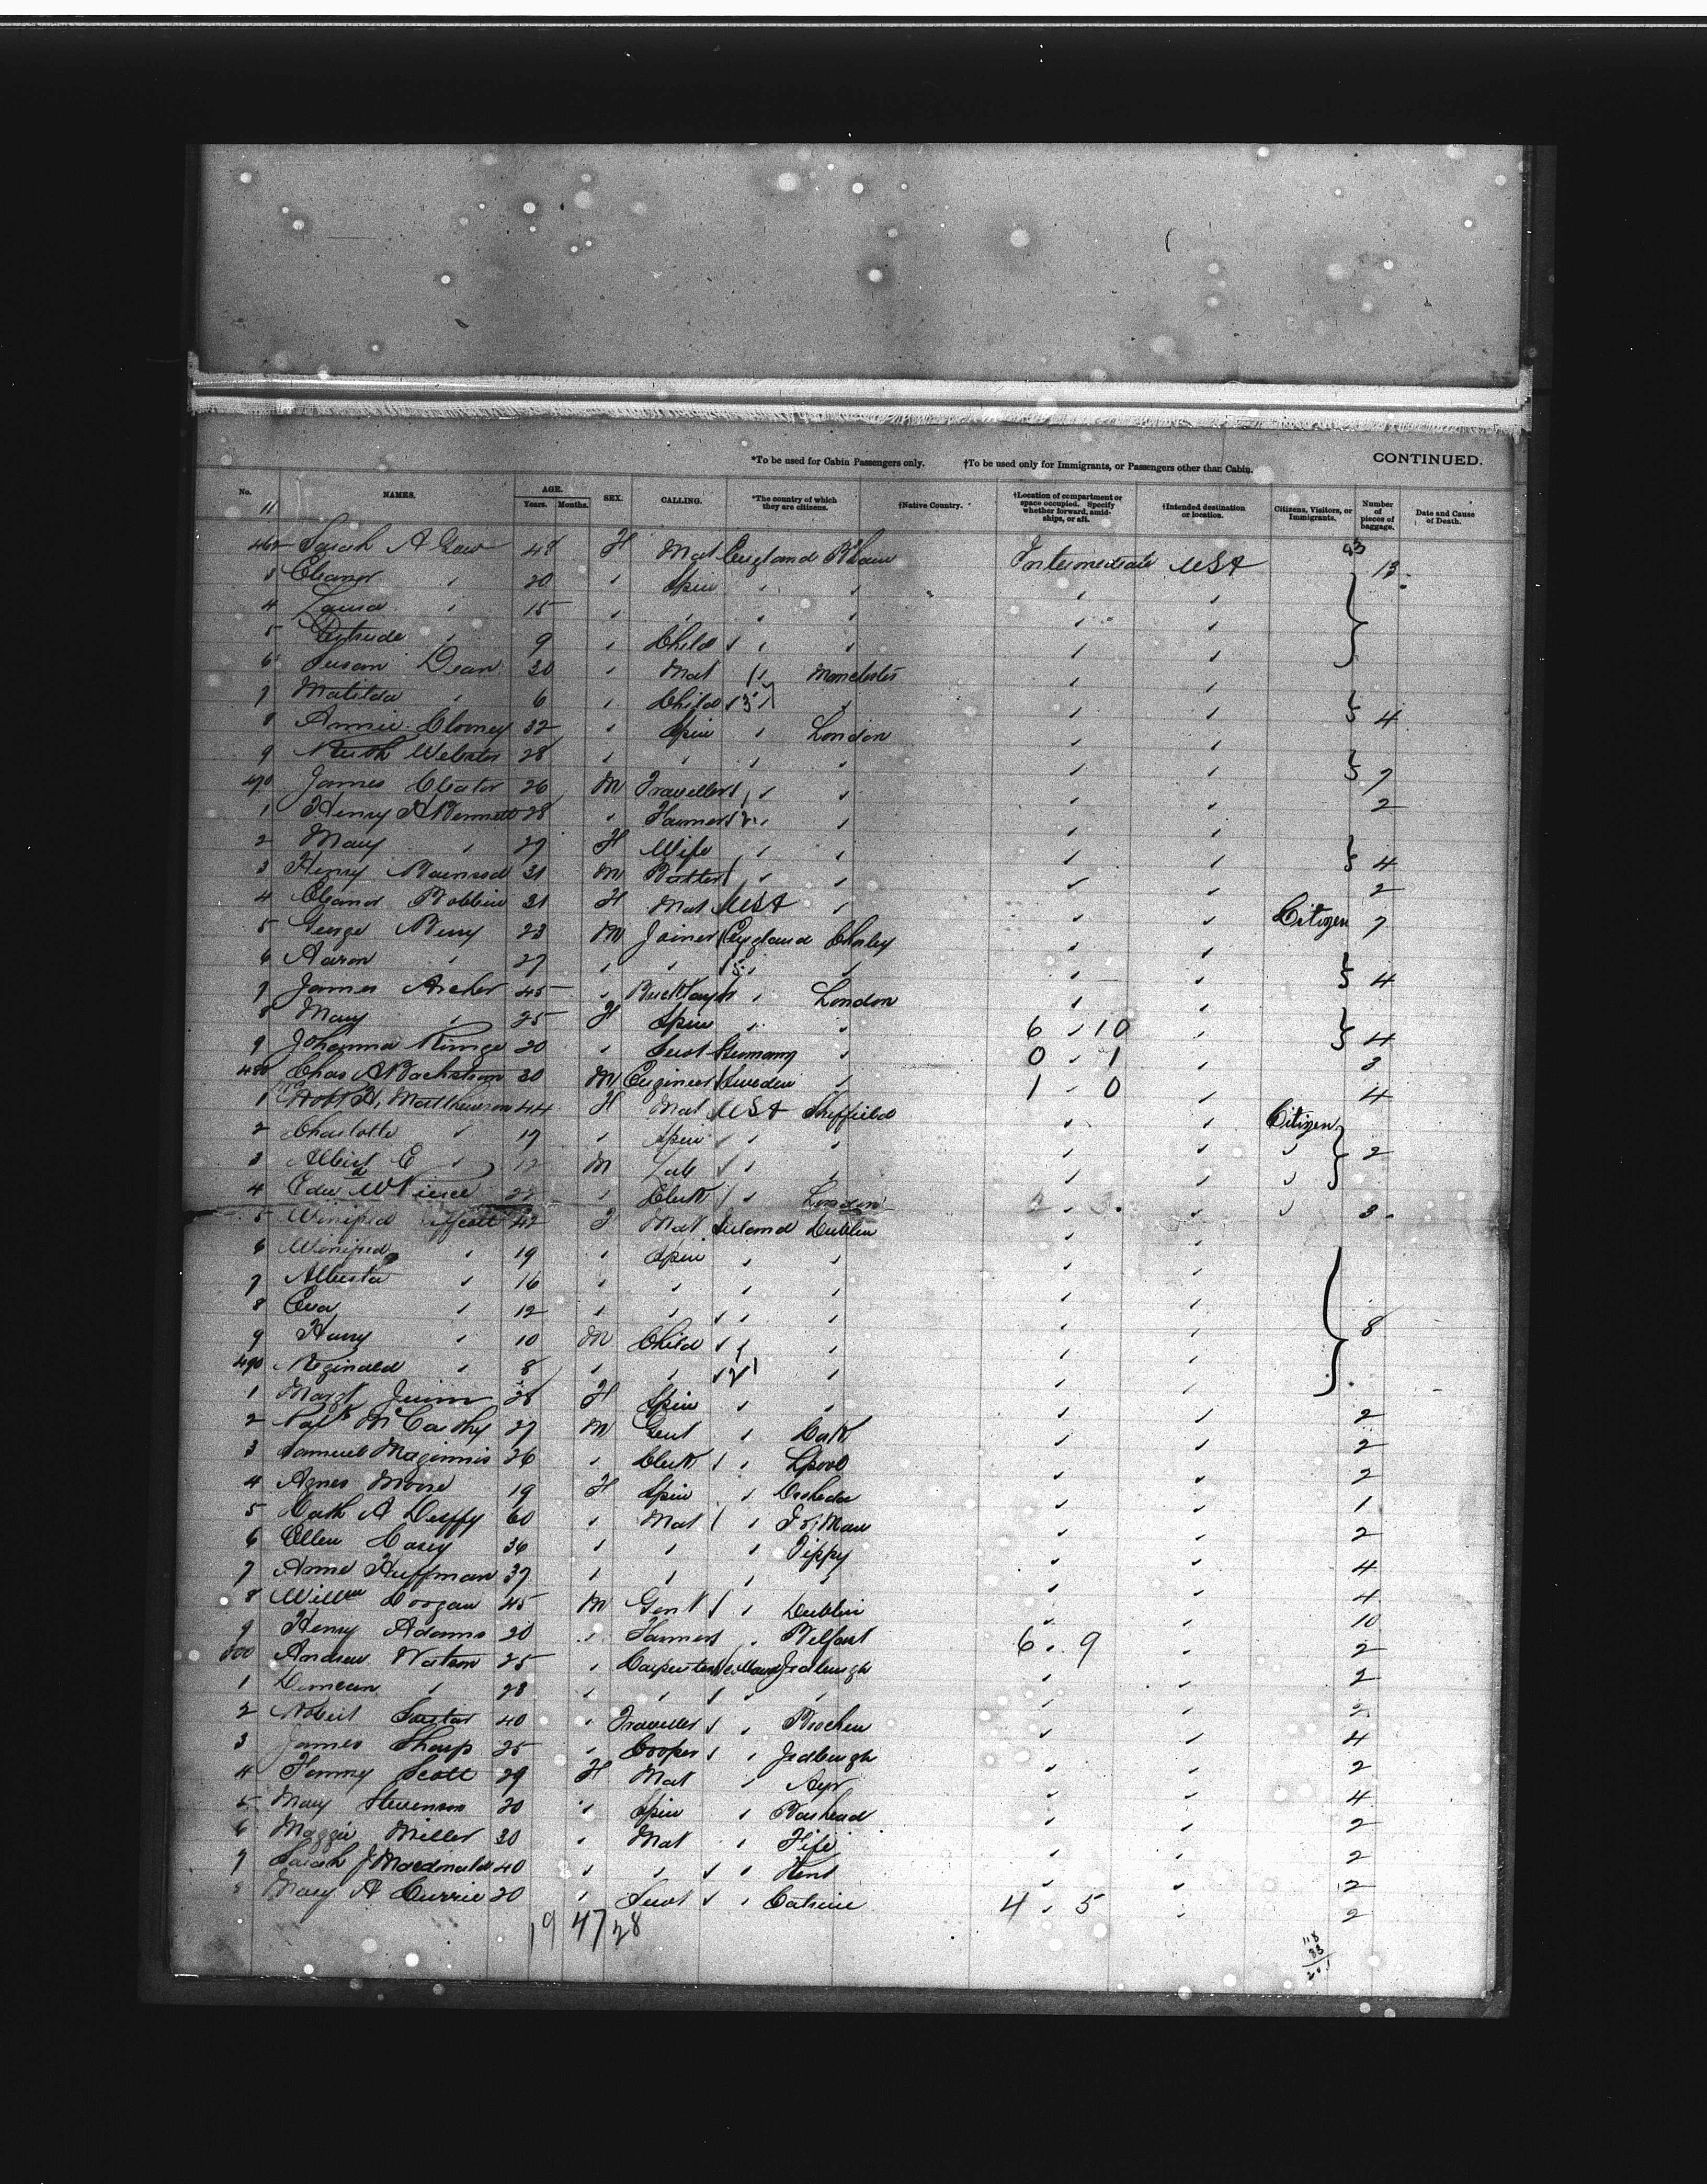 *To be used for Cabin Passengers only. †To be used only for Immigrants, or Passengers other than Cabin. CONTINUED.
No. NAMES. AGE. Years. Months. SEX. CALLING. *The country of which they are citizens. †Native Country. †Location of compartment or space occupied. Specify whether forward, amidships, or aft. †Intended destination or location. Citizens, Visitors, or Immigrants. Number of pieces of baggage. Date and Cause of Death.
11
462 Sarah A 48 F Mat England B'ham Intermediate USA 13
3 Eleanor 20 Spin
4 Laura 15
5 Gertrude 9 Child
6 Susan Dean 30 Mat Manchester
7 Matilda 6 Child 4
8 Annie Clooney 32 Spin London
9 Ruth Webster 28 7
470 James Cleator 26 M Traveller 2
1 Henry A Bennett 28 Farmer
2 Mary 27 F Wife 4
3 Henry 31 M 2
4 Eleanor Robbins 31 F Mat USA Citizen 7
5 George Berry 23 M Joiner England Chorley
6 Aaron 27 4
7 James Archer 45 Bricklayer London
8 Mary 25 F Spin 6 10 4
9 Johanna 20 Servt Germany 0 1 3
480 Chas A Backstrom 30 M Engineer Sweden 1 0 4
1 Mrs Robt A. Matthewson 44 F Mat USA Sheffield Citizen
2 Charlotte 17 Spin 2
3 Albert E 12 M Lab
4 Edw W Pierce 22 Clerk London 3
5 Winifred Scott 42 F Mat Ireland Dublin
6 Winifred 19 Spin
7 Alberta 16
8 Eva 12
9 Harry 10 M Child 8
490 Reginald 8
1 Margt 28 F Spin 2
2 McCarthy 27 M Gent Cork 2
3 Samuel Maginnis 26 Clerk L'pool 2
4 Agnes Moore 19 F Spin Drogheda 1
5 Cath A Duffy 60 Mat I of Man 2
6 Ellen Casey 36 Tippy 4
7 Anne Huffman 37 4
8 Willm 45 M Gent Dublin 10
9 Henry Adams 20 Farmer Belfast 6 9 2
500 Andrew Watson 25 Carpenter Scotland Jedburgh 2
1 Duncan 23 2
2 Robert 40 Traveller 4
3 James Sharp 25 Cooper Jedburgh 2
4 Fanny Scott 29 F Mat Ayr 4
5 Mary Stevenson 20 Spin Barhead 2
6 Maggie Miller 30 Mat Fife 2
7 Sarah J Macdonald 40 Kent 2
8 Mary A Currie 20 Servt Catrine 4 5 2
19 47 28
118
83
201